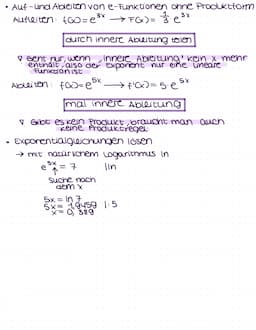 • Auf- und Ableiten von e-Funktionen ohne Produktform
Aufleiten: f(x)=e³ˣ → F(x)= 1/3 e³ˣ
durch innere Ableitung teilen
! Geht nur, wenn "innere Ableitung" kein x mehr
enthält, also der Exponent nur eine lineare
Funktion ist
Ableiten: f(x)=e⁵ˣ → f'(x)= 5·e⁵ˣ
mal innere Ableitung
! Gibt es kein Produkt, braucht man auch
keine Produktregel
• Exponentialgleichungen lösen
→ mit natürlichem Logarithmus ln
e⁵ˣ = 7 |ln
↑
Suche nach
dem x
5x = ln 7
5x = 1,9459 |:5
x = 0,389